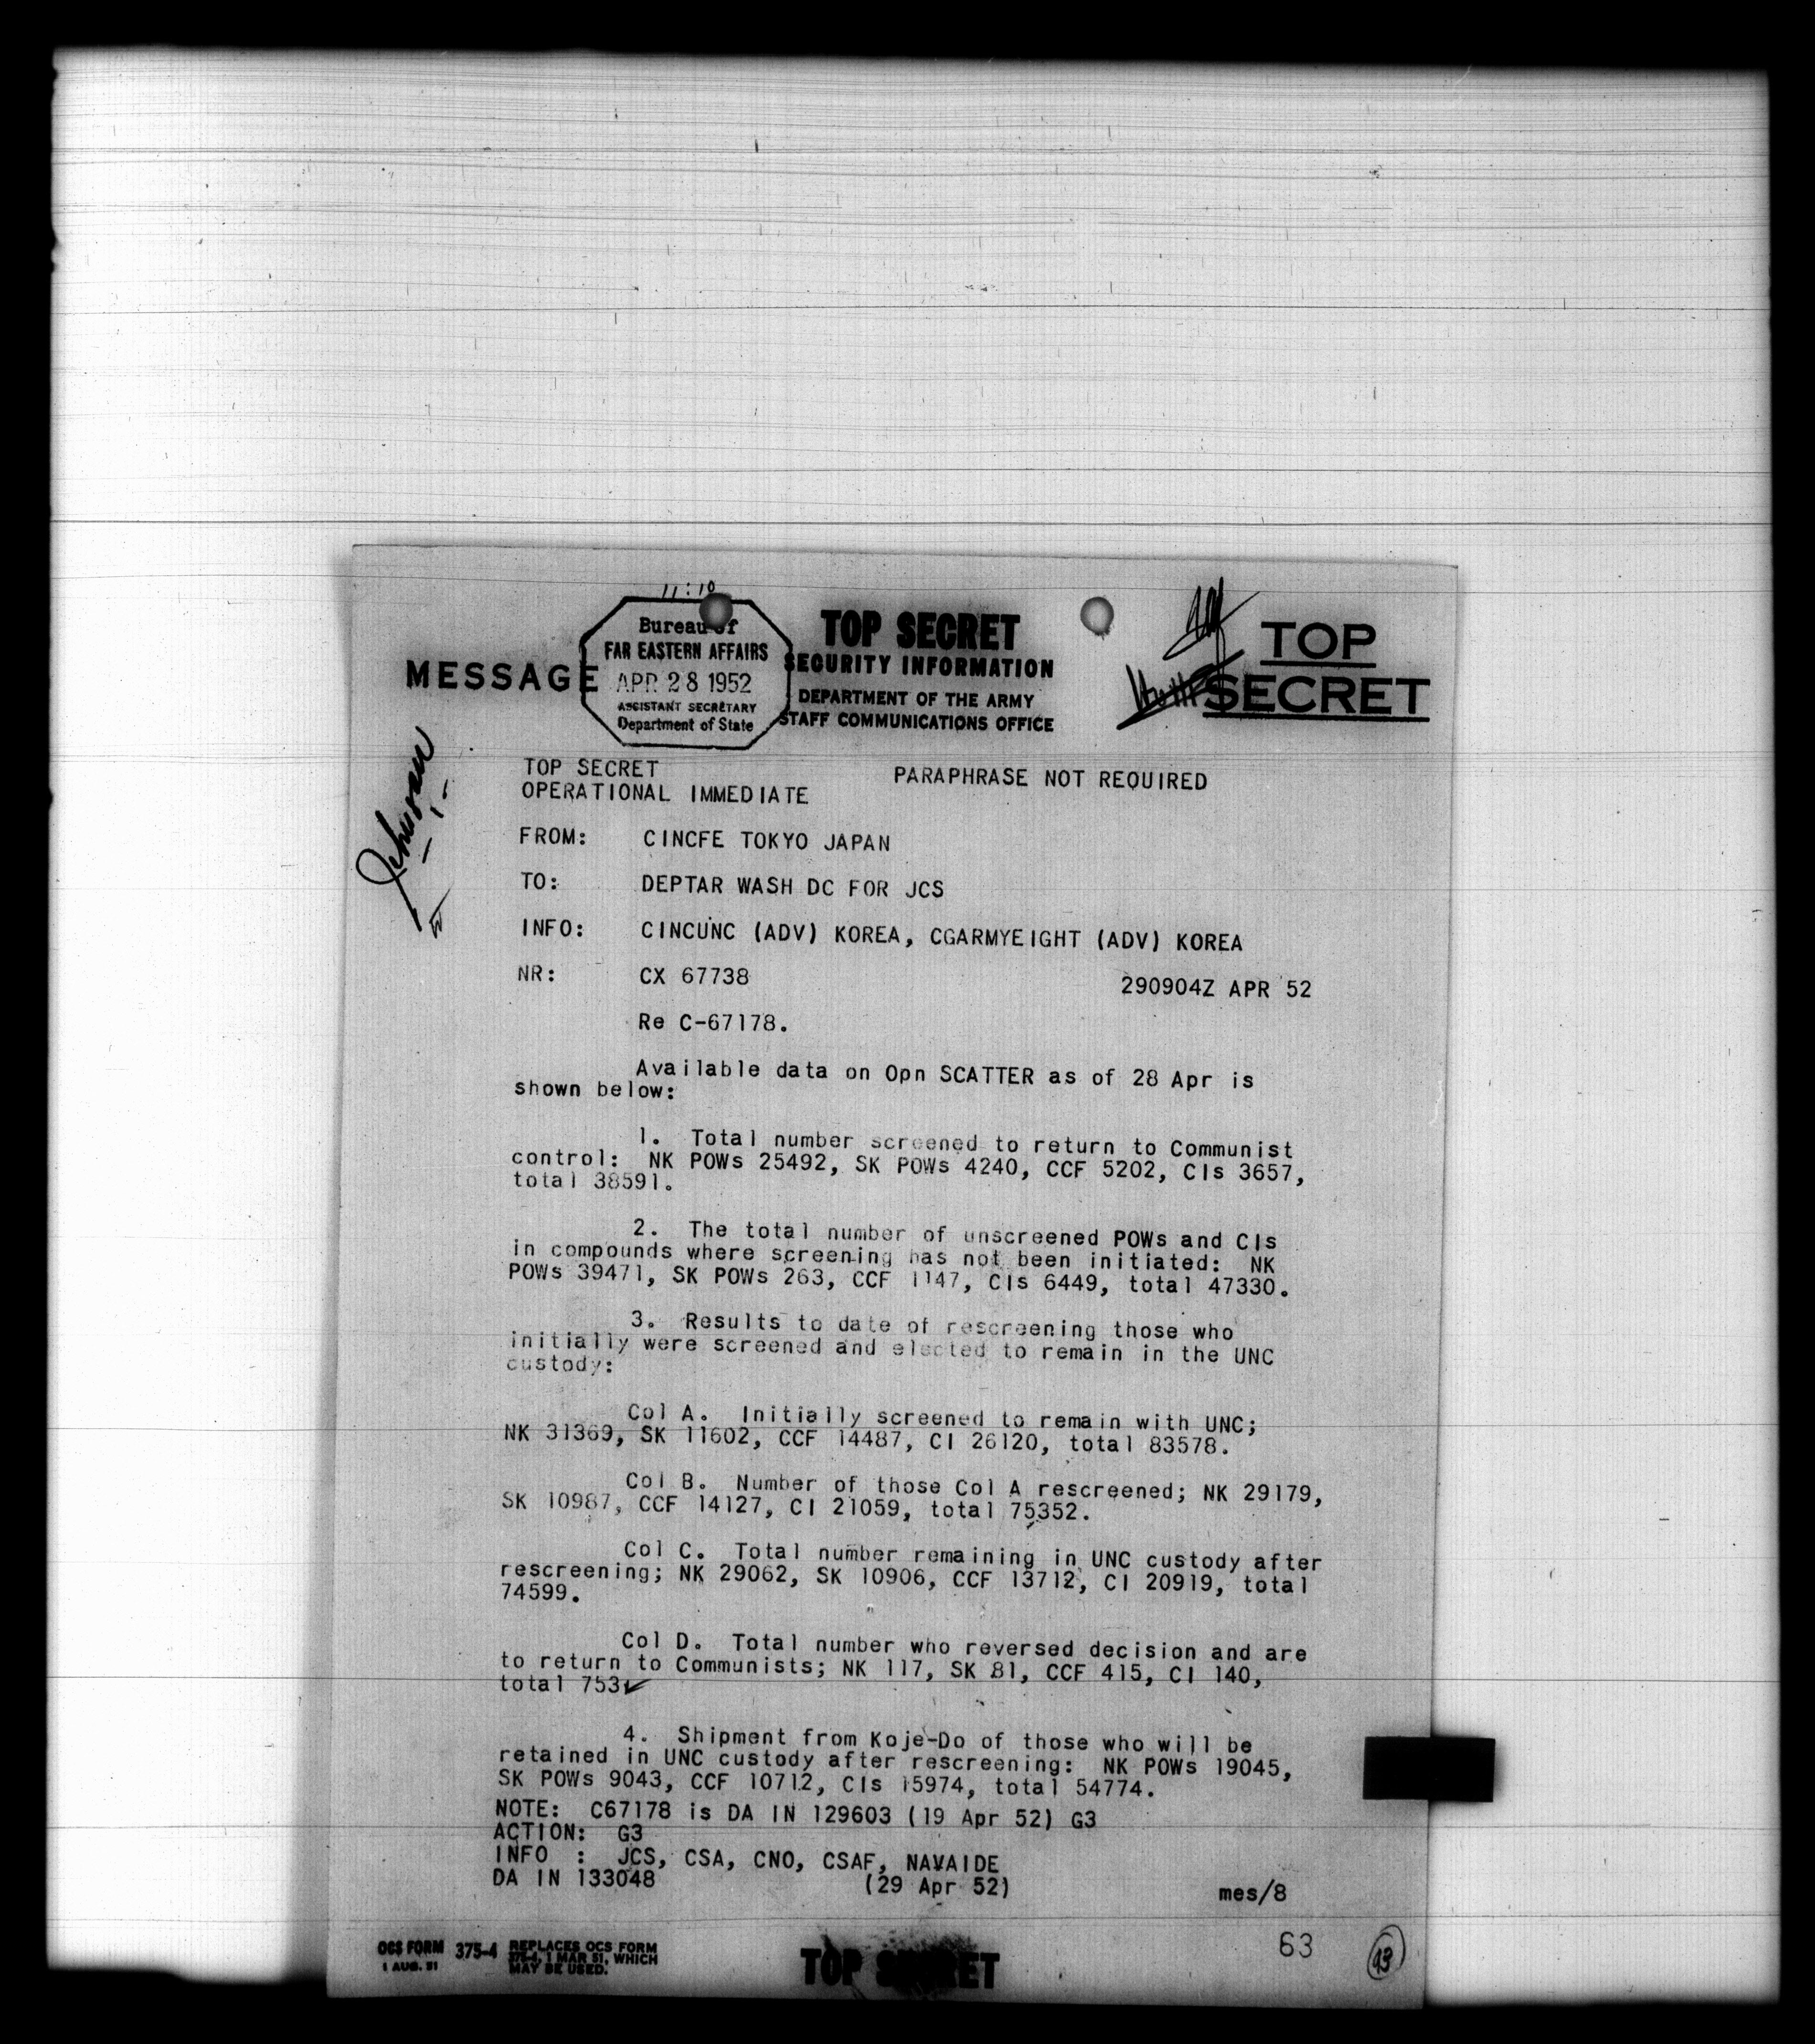 11:10
Bureau of
FAR EASTERN AFFAIRS
APR 28 1952
ASSISTANT SECRETARY
Department of State
MESSAGE
TOP SECRET
SECURITY INFORMATION
DEPARTMENT OF THE ARMY
STAFF COMMUNICATIONS OFFICE
TOP
SECRET
Johnson
TOP SECRET PARAPHRASE NOT REQUIRED
OPERATIONAL IMMEDIATE
FROM: CINCFE TOKYO JAPAN
TO: DEPTAR WASH DC FOR JCS
INFO: CINCUNC (ADV) KOREA, CGARMYEIGHT (ADV) KOREA
NR: CX 67738 290904Z APR 52
Re C-67178.
Available data on Opn SCATTER as of 28 Apr is
shown below:
1. Total number screened to return to Communist
control: NK POWs 25492, SK POWs 4240, CCF 5202, CIs 3657,
total 38591.
2. The total number of unscreened POWs and CIs
in compounds where screening has not been initiated: NK
POWs 39471, SK POWs 263, CCF 1147, CIs 6449, total 47330.
3. Results to date of rescreening those who
initially were screened and elected to remain in the UNC
custody:
Col A. Initially screened to remain with UNC;
NK 31369, SK 11602, CCF 14487, CI 26120, total 83578.
Col B. Number of those Col A rescreened; NK 29179,
SK 10987, CCF 14127, CI 21059, total 75352.
Col C. Total number remaining in UNC custody after
rescreening; NK 29062, SK 10906, CCF 13712, CI 20919, total
74599.
Col D. Total number who reversed decision and are
to return to Communists; NK 117, SK 81, CCF 415, CI 140,
total 753
4. Shipment from Koje-Do of those who will be
retained in UNC custody after rescreening: NK POWs 19045,
SK POWs 9043, CCF 10712, CIs 15974, total 54774.
NOTE: C67178 is DA IN 129603 (19 Apr 52) G3
ACTION: G3
INFO : JCS, CSA, CNO, CSAF, NAVAIDE
DA IN 133048 (29 Apr 52) mes/8
OCS FORM 375-4 REPLACES OCS FORM
1 AUG. 51 375-4, 1 MAR 51, WHICH
MAY BE USED.
TOP SECRET
63
93